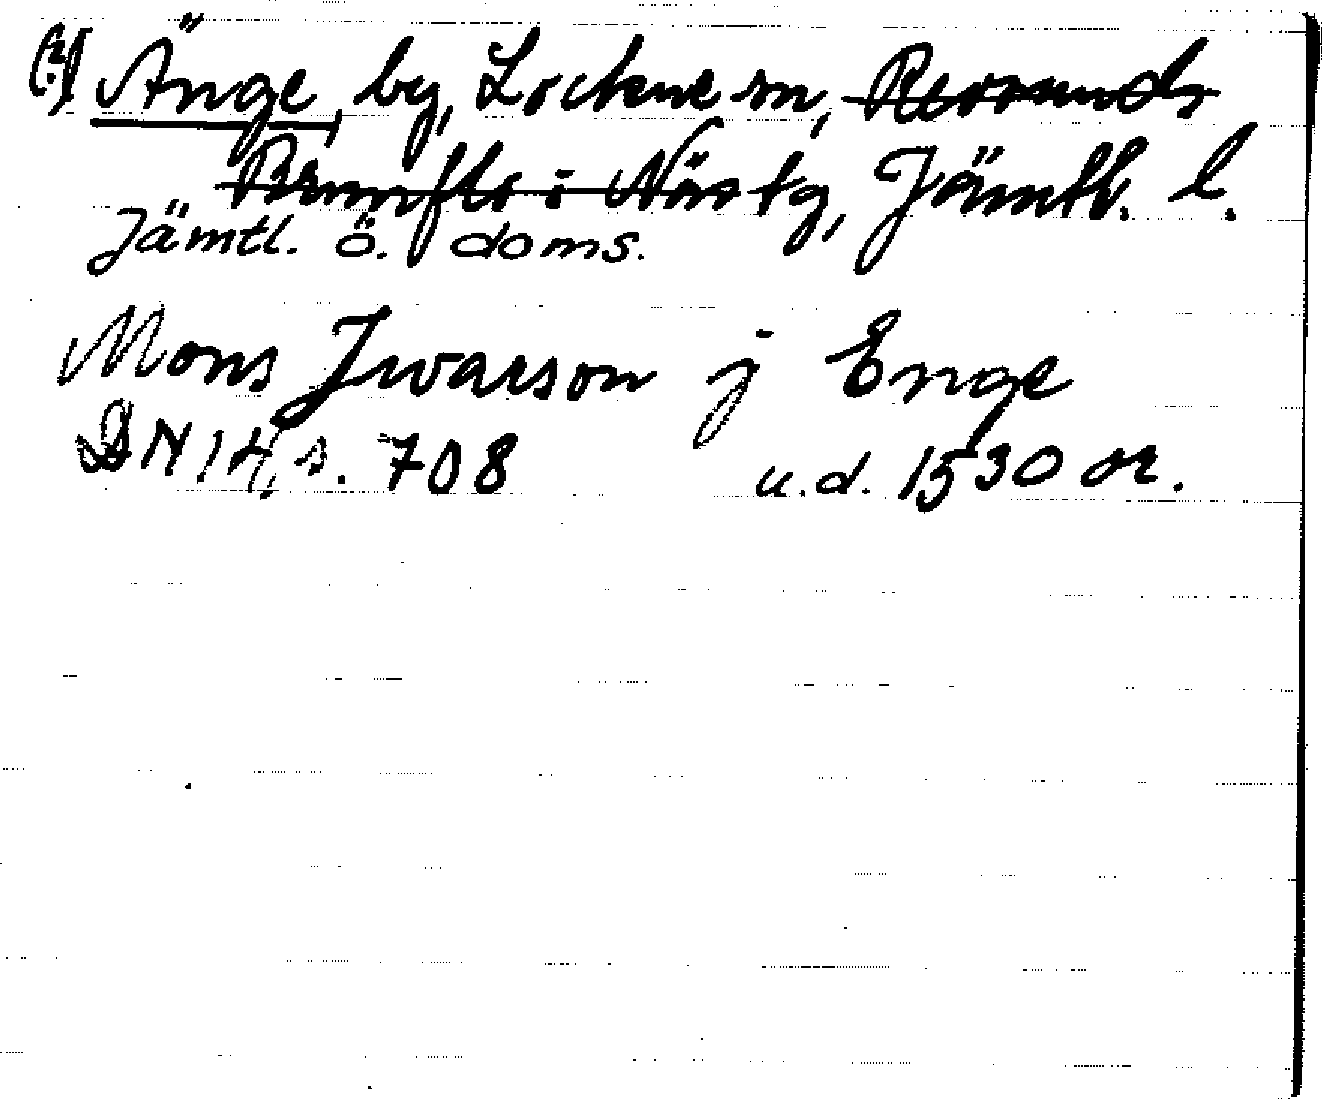 (?) Änge, by, Lockne sn, Revsunds
Brunflo o Näs tg, Jämtl. l.
Jämtl. ö. doms.
Mons Jwarson j Enge
DN 14, s. 708 u.d. 1530 or.